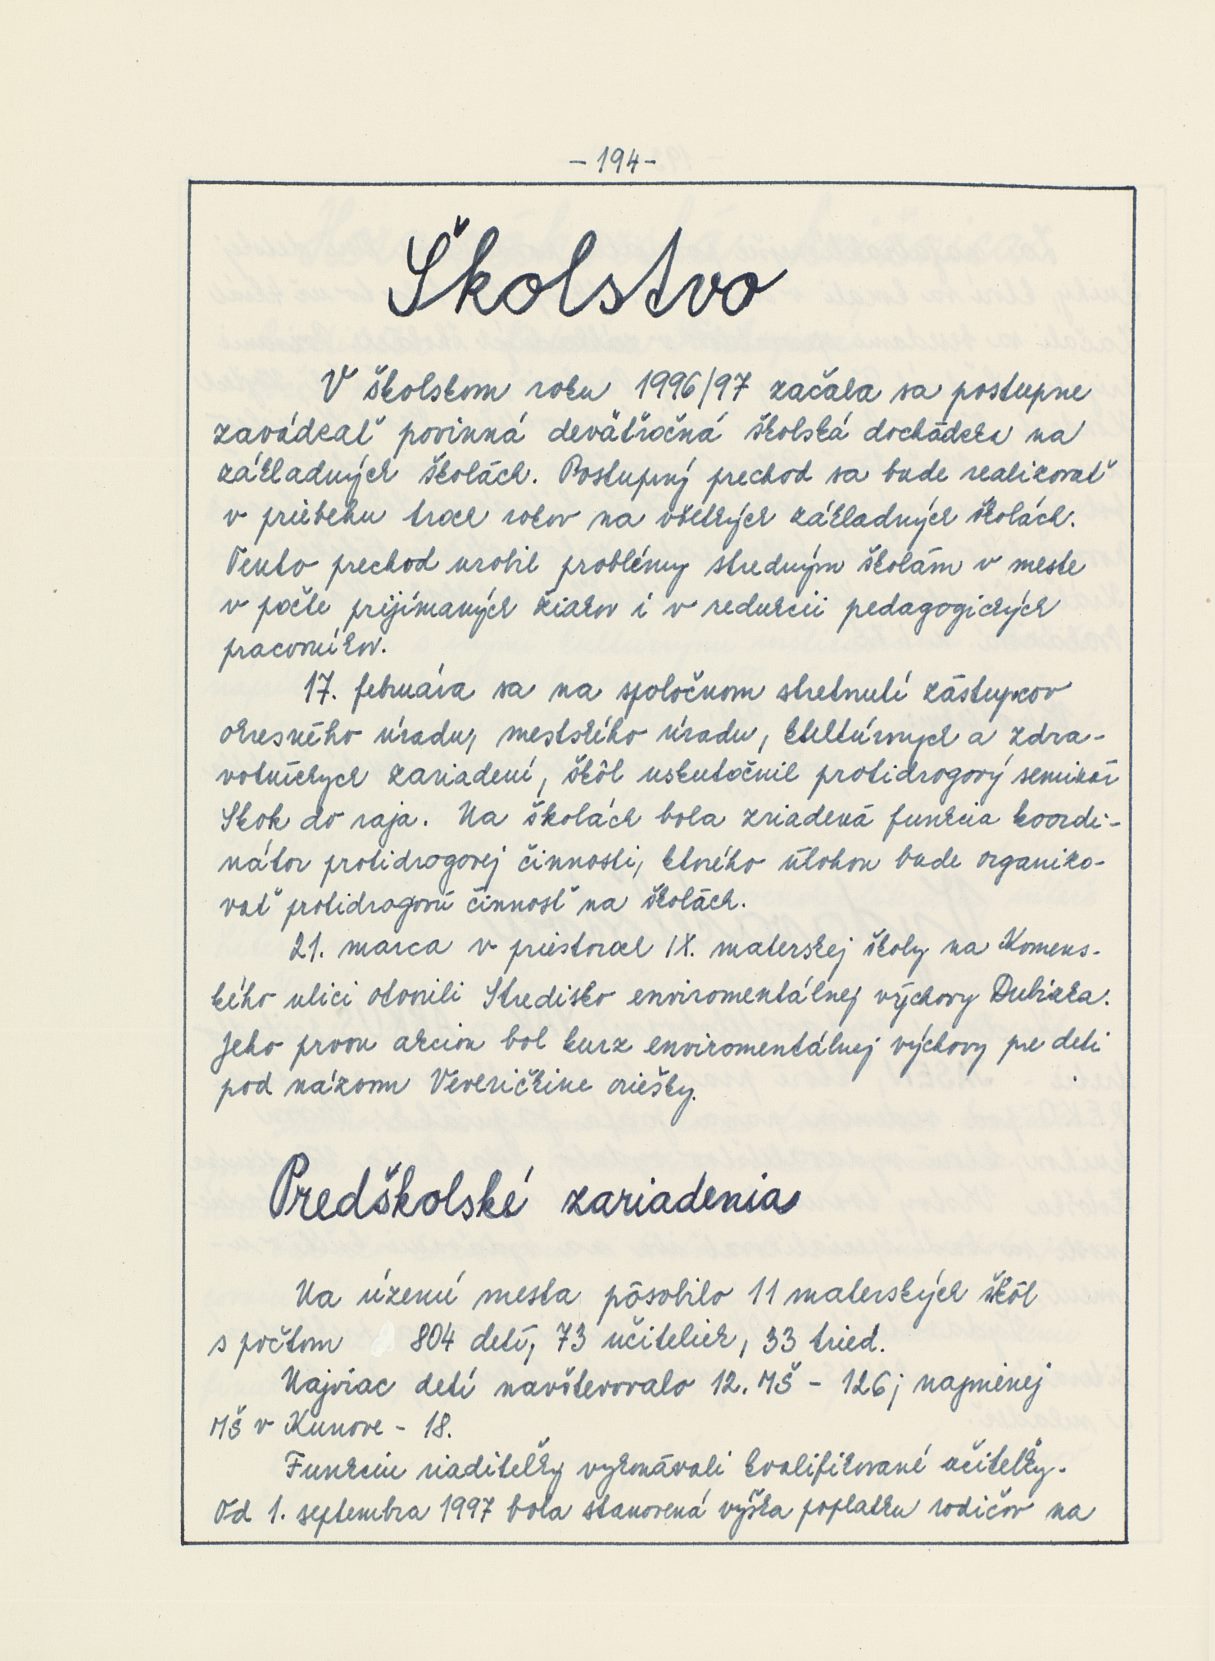 - 194 -
Školstvo
V školskom roku 1996/97 začala sa postupne
zavádzať povinná deväťročná školská dochádzka na
základných školách. Postupný prechod sa bude realizovať
v priebehu troch rokov na všetkých základných školách.
Tento prechod urobil problémy stredným školám v meste
v počte prijímaných žiakov i v redukcii pedagogických
pracovníkov.
17. februára sa na spoločnom stretnutí zástupcov
okresného úradu, mestského úradu, kultúrnych a zdra-
votníckych zariadení, škôl uskutočnil protidrogový seminár
Skok do raja. Na školách bola zriadená funkcia koordi-
nátor protidrogovej činnosti, ktorého úlohou bude organizo-
vať protidrogovú činnosť na školách.
21. marca v priestoroch IX. materskej školy na Komens-
kého ulici otvorili Stredisko enviromentálnej výchovy Dubinka.
Jeho prvou akciou bol kurz enviromentálnej výchovy pre deti
pod názvom Veveričkine oriešky.
Predškolské zariadenia
Na území mesta pôsobilo 11 materských škôl
s počtom 804 detí, 73 učiteliek, 33 tried.
Najviac detí navštevovalo 12. MŠ - 126; najmenej
MŠ v Kunove - 18.
Funkciu riaditeľky vykonávali kvalifikované učiteľky.
Od 1. septembra 1997 bola stanovená výška poplatku rodičov na